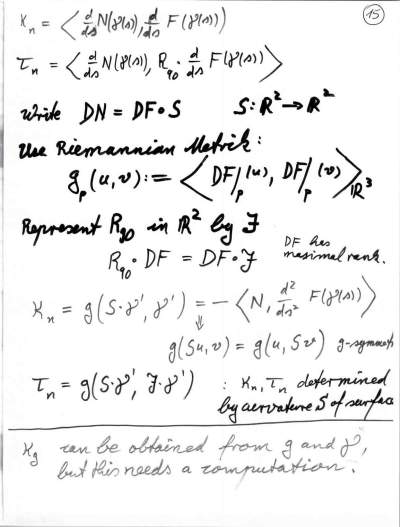 15
κ_n = ⟨ d/ds N(γ(s)), d/ds F(γ(s)) ⟩
τ_n = ⟨ d/ds N(γ(s)), R_90 · d/ds F(γ(s)) ⟩
write DN = DF∘S S: ℝ² → ℝ²
Use Riemannian Metrik:
g_p(u,v) := ⟨ DF|_p(u), DF|_p(v) ⟩_ℝ³
Represent R_90 in ℝ² by J
DF has
R_90 · DF = DF · J maximal rank.
κ_n = g(S·γ', γ') = - ⟨ N, d²/ds² F(γ(s)) ⟩
⇓
g(Su,v) = g(u,Sv) g-symmetr
τ_n = g(S·γ', J·γ') : κ_n, τ_n determined
by curvature S of surface
κ_g can be obtained from g and γ,
but this needs a computation.